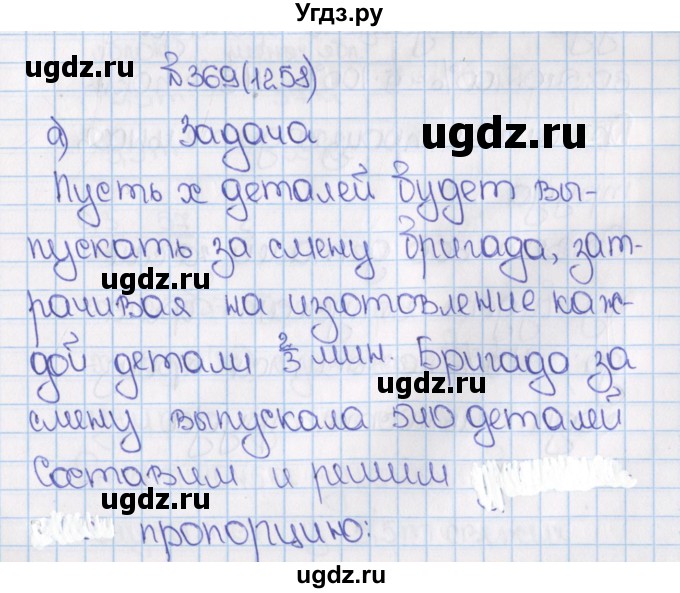 Угдз.ру
№369(1258)
а) Задача
Пусть x деталей будет вы-
пускать за смену бригада, зат-
рачивая на изготовление каж-
дой детали 2/3 мин. Бригада за
смену выпускала 540 деталей
Составим и решим
пропорцию:
ugdz.ru
ugdz.ru
ugdz.ru
ugdz.ru
ugdz.ru
ugdz.ru
ugdz.ru